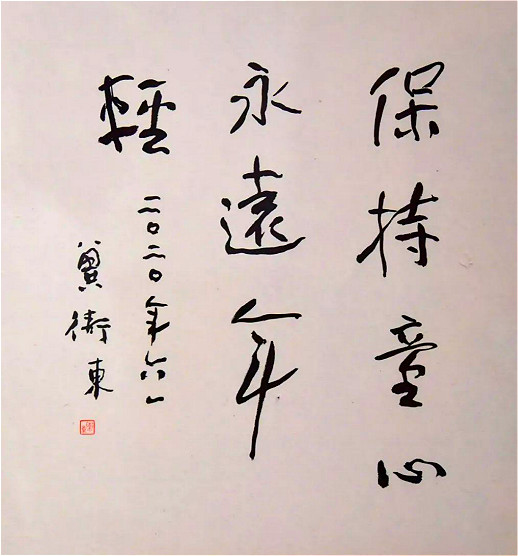 保持童心
永遠年
輕
二〇二〇年六一
冀衛東